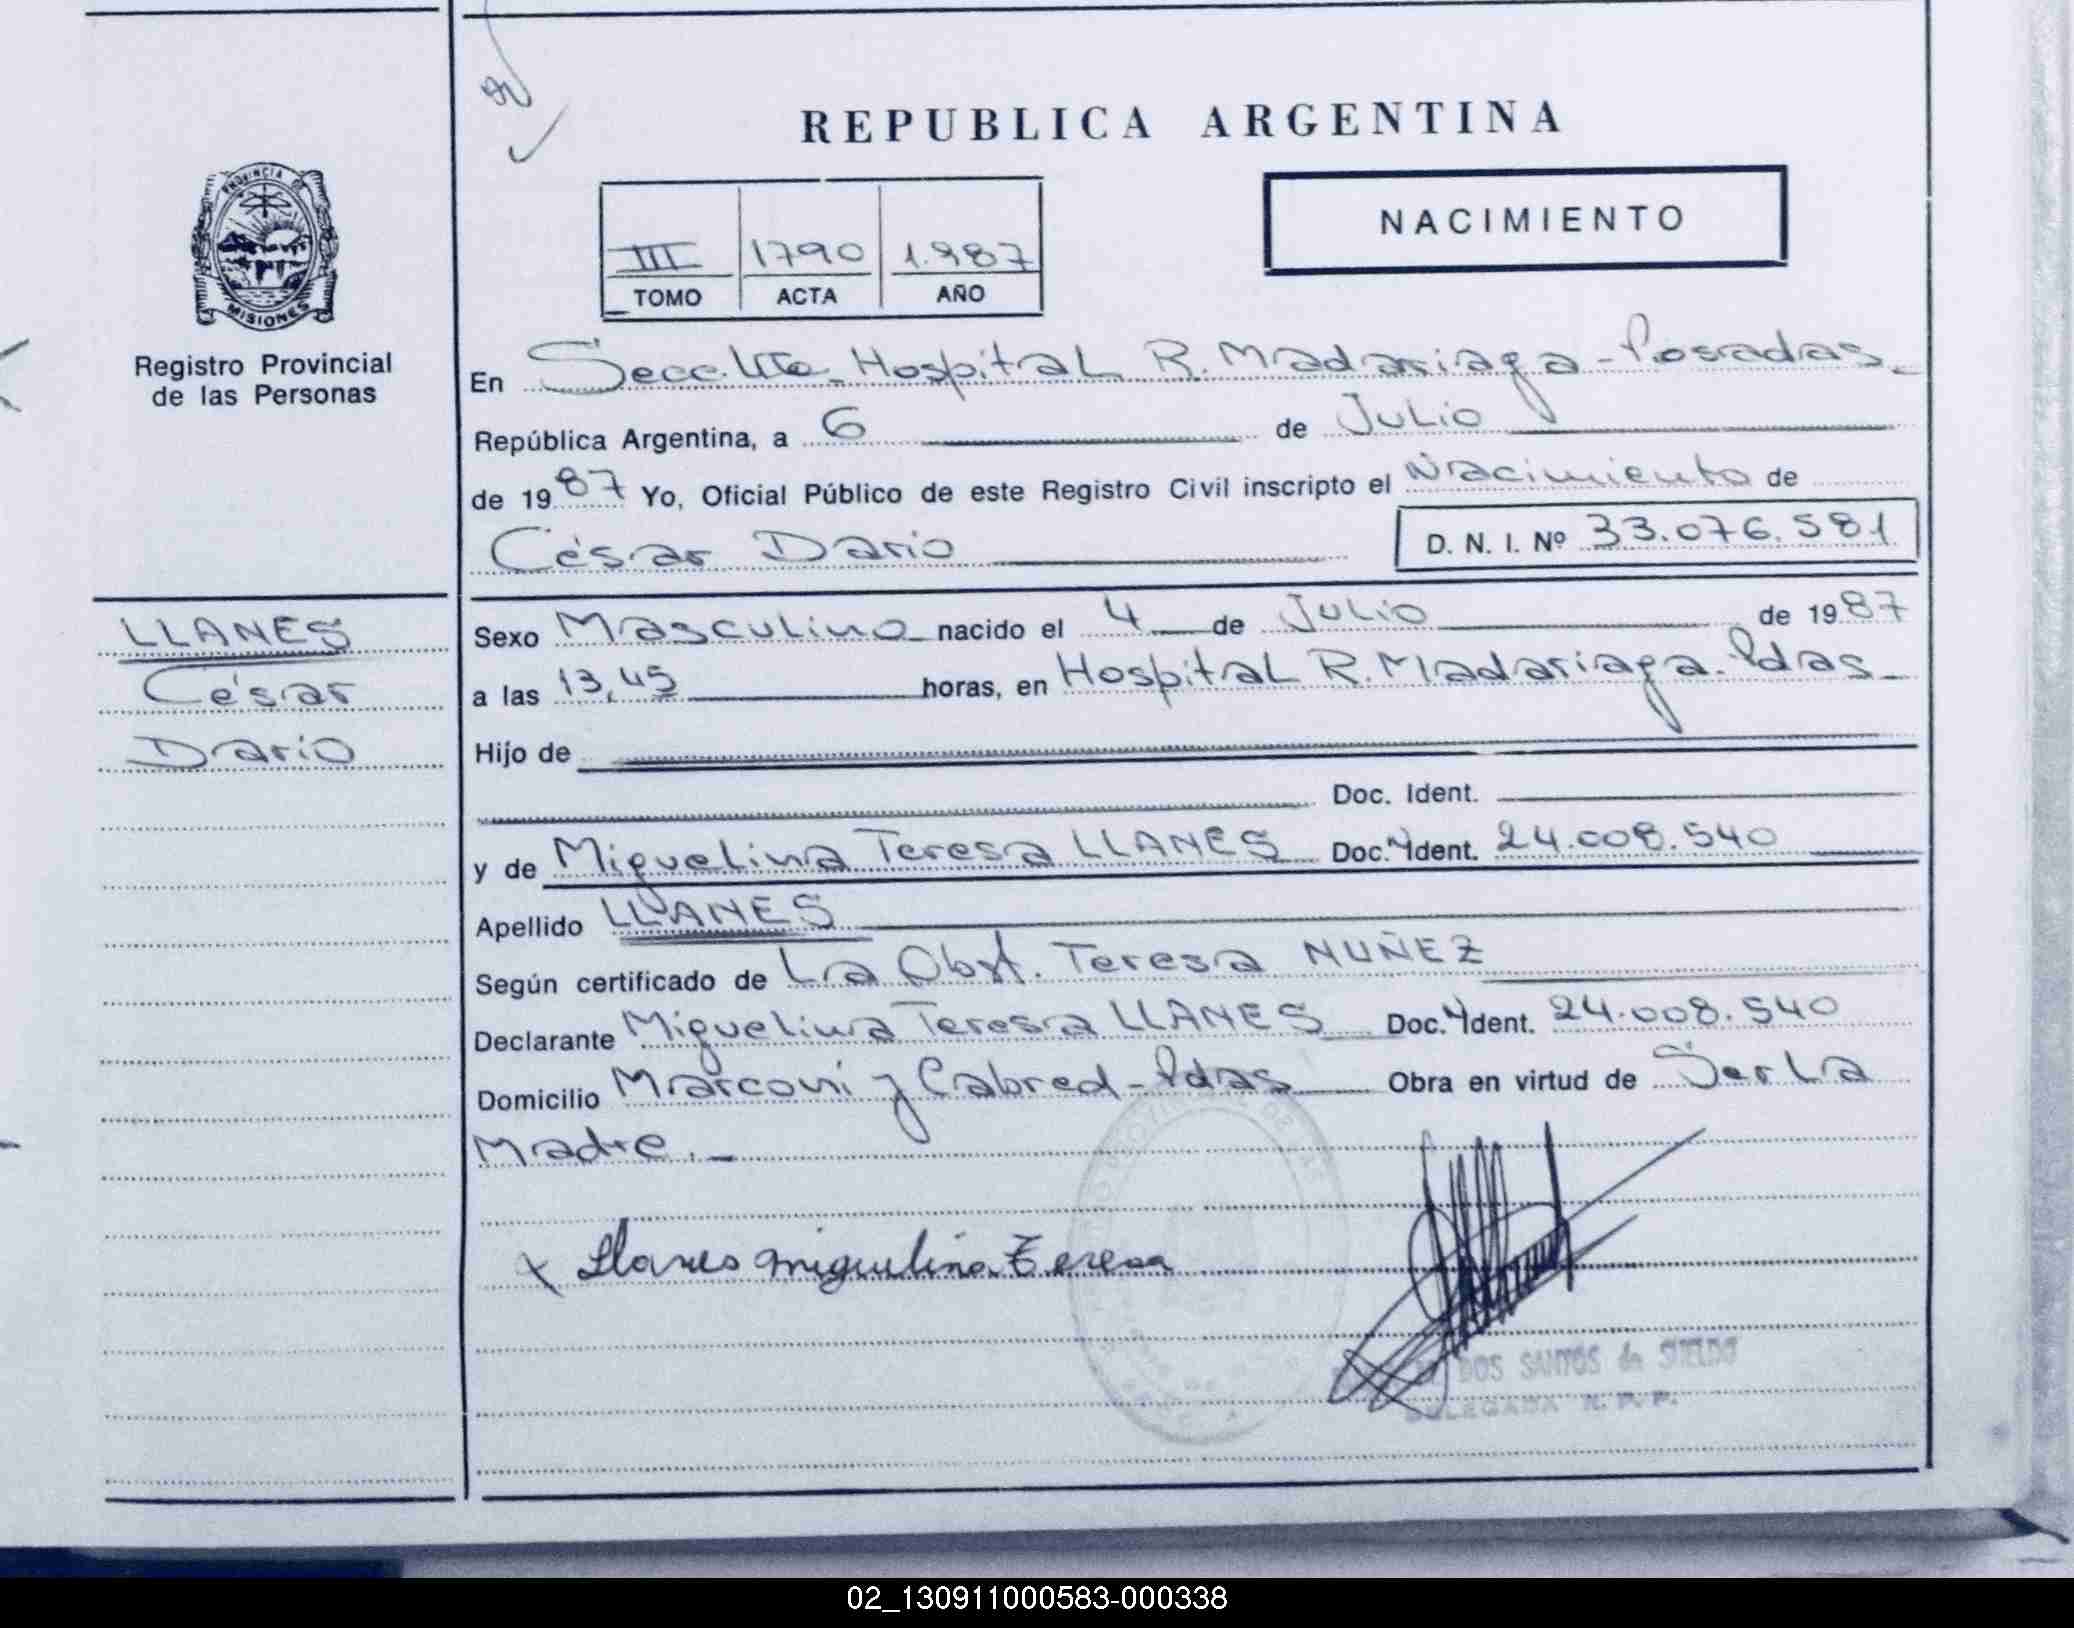 REPUBLICA ARGENTINA
NACIMIENTO
III 1790 1.987
TOMO ACTA AÑO
PROVINCIA DE
MISIONES
Registro Provincial
de las Personas
En Secc. Hospital R. Madariaga - Posadas
República Argentina, a 6 de Julio
de 1987 Yo, Oficial Público de este Registro Civil inscripto el Nacimiento de
César Dario D. N. I. Nº 33.076.581
LLANES
César
Dario
Sexo Masculino nacido el 4 de Julio de 1987
a las 13,45 horas, en Hospital R. Madariaga. Pdas
Hijo de
Doc. Ident.
y de Miguelina Teresa LLANES Doc. Ident. 24.008.540
Apellido LLANES
Según certificado de La Obst. Teresa NUÑEZ
Declarante Miguelina Teresa LLANES Doc. Ident. 24.008.540
Domicilio Marconi y Cabred - Pdas Obra en virtud de Ser La
Madre.
x Llanes Miguelina Teresa
DOS SANTOS de SUELDO
DELEGADA R. P. P.
02_130911000583-000338